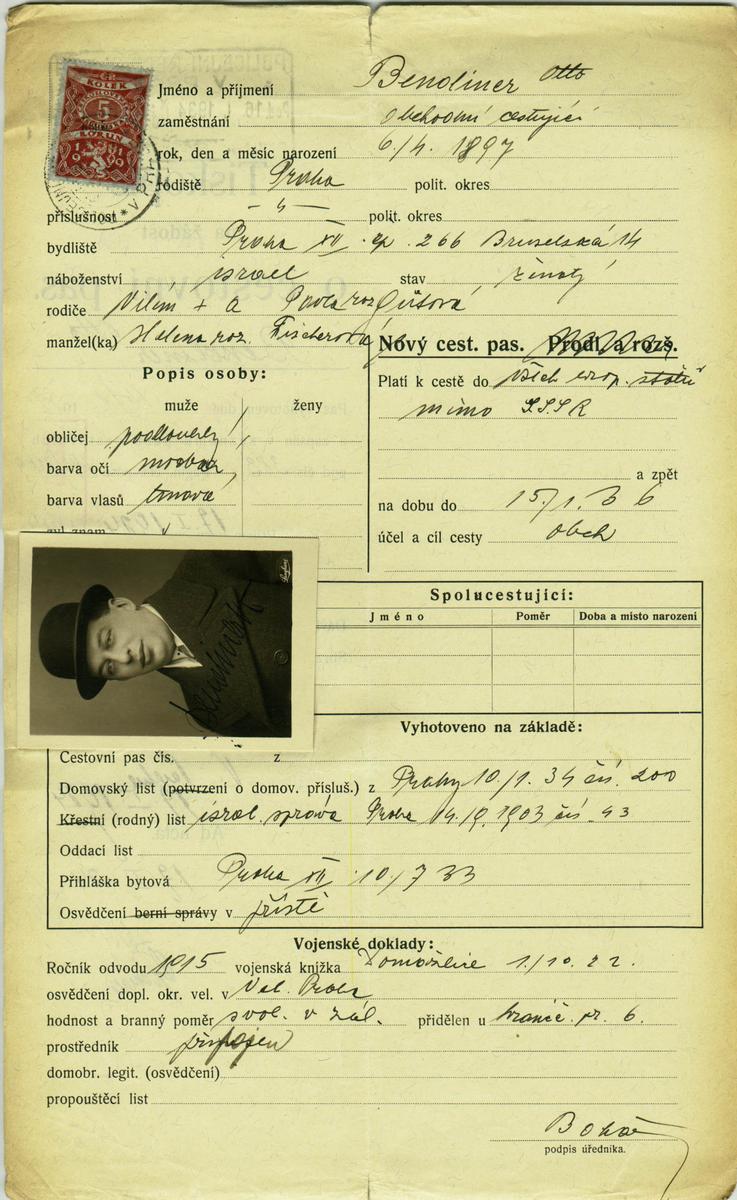 KOLEK
5
KORUN
V PRA
Jméno a příjmení Bendiner Otto
zaměstnání obchodní cestující
rok, den a měsíc narození 6./4. 1897
rodiště Praha polit. okres
příslušnost -"- polit. okres
bydliště Praha XII. čp. 266 Bruselská 14
náboženství israel stav ženatý
rodiče Vilém + a Pavla roz.
manžel(ka) Helena roz. Fischerová
Nový cest. pas. Prodl. a rozš.
Popis osoby:
Platí k cestě do všech evrop. států
mimo S.S.S.R
muže ženy
obličej podlouhlý
barva očí
barva vlasů
a zpět
na dobu do 15/1. 36
zvl. znam.
účel a cíl cesty obch
Spolucestující:
Jméno Poměr Doba a místo narození
Vyhotoveno na základě:
Cestovní pas čís. z
Domovský list (potvrzení o domov. přísluš.) z Prahy 10/1. 34 čís. 200
Křestní (rodný) list israel. správa Praha 1903 čís. 43
Oddací list
Přihláška bytová Praha XII 10/7 33
Osvědčení berní správy v příště
Vojenské doklady:
Ročník odvodu 1915 vojenská knížka Domažlice 1./10. 22.
osvědčení dopl. okr. vel. v Vel. Praha
hodnost a branný poměr svob. v zál. přidělen u hranič. pr. 6.
prostředník připojen
domobr. legit. (osvědčení)
propouštěcí list
podpis úředníka.